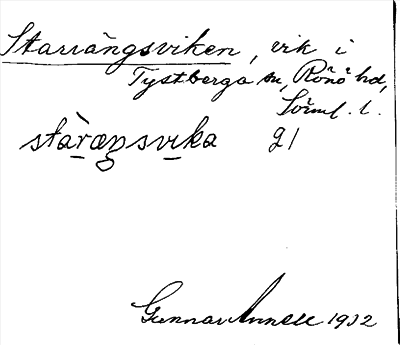 Starrängsviken, vik i
Tystberga sn, Rönö hd,
Sörml. l.
stàræŋsvika 21
Gunnar Annell 1932